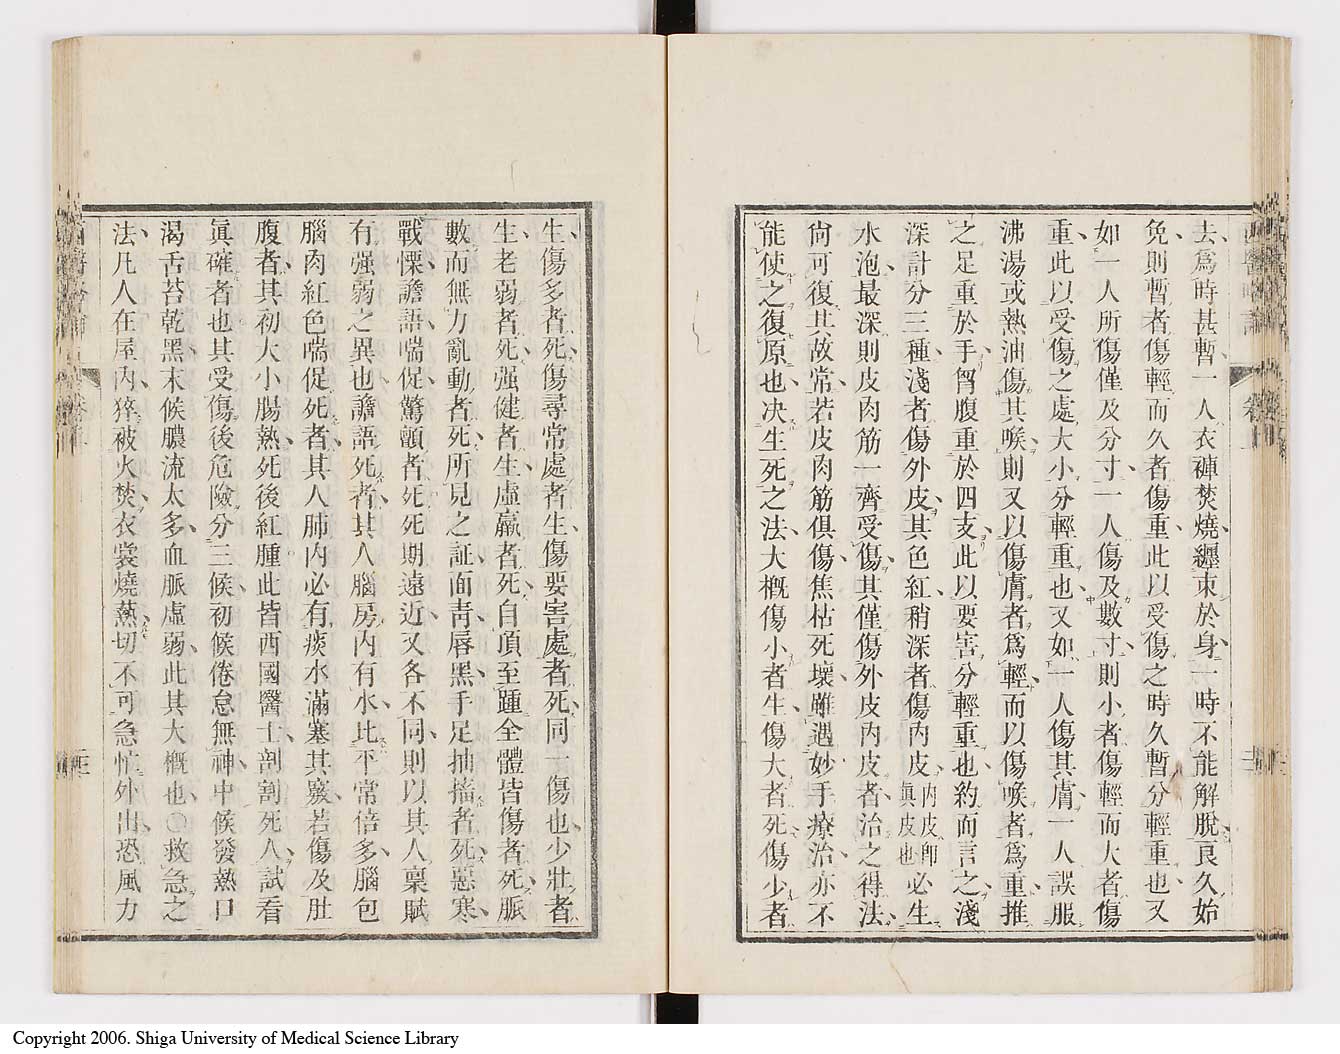 去爲時甚暫一人衣褲焚燒纒束於身一時不能解脫良久始
免則暫者傷輕而久者傷重此以受傷之時久暫分輕重也又
如一人所傷僅及分寸一人傷及數寸則小者傷輕而大者傷
重此以受傷之處大小分輕重也又如一人傷其膚一人誤服
沸湯或熱油傷其喉則又以傷膚者爲輕而以傷喉者爲重推
之足重於手胷腹重於四支此以要害分輕重也約而言之淺
深計分三種淺者傷外皮其色紅稍深者傷内皮内皮卽眞皮也必生
水泡最深則皮肉筋一齊受傷其僅傷外皮内皮者治之得法
尙可復其故常若皮肉筋俱傷焦枯死壞雖遇妙手療治亦不
能使之復原也决生死之法大槪傷小者生傷大者死傷少者
生傷多者死傷尋常處者生傷要害處者死同一傷也少壯者
生老弱者死强健者生虛羸者死自頂至踵全體皆傷者死脈
數而無力亂動者死所見之証面靑唇黑手足抽搐者死惡寒
戰慄譫語喘促驚顫者死死期遠近又各不同則以其人稟賦
有强弱之異也譫語死者其人腦房内有水比平常倍多腦包
腦肉紅色喘促死者其人肺内必有痰水滿塞其竅若傷及肚
腹者其初大小腸熱死後紅腫此皆西國醫士剖割死人試看
眞確者也其受傷後危險分三候初候倦怠無神中候發熱口
渴舌苔乾黑末候膿流太多血脈虛弱此其大槪也○救急之
法凡人在屋内猝被火焚衣裳燒𤍠切不可急忙外出恐風力
Copyright 2006. Shiga University of Medical Science Library